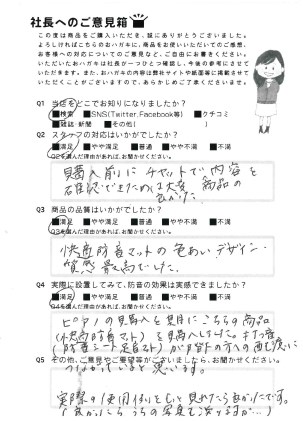 社長へのご意見箱
この度は商品をご購入いただき、誠にありがとうございました。
よろしければこちらのおハガキに、商品をお使いいただいてのご感想、
お客様への対応についてのご意見など、ご自由にお書きください。
いただいたおハガキは社長が一つひとつ確認し、今後の参考にさせて
いただきます。また、おハガキの内容は弊社サイトや紙面等に掲載させて
いただくことがございますので、あらかじめご了承くださいませ。
Q1 当店をどこでお知りになりましたか?
■検索 ■SNS(Twitter,Facebook等) ■クチコミ
■雑誌・新聞 ■その他( )
Q2 スタッフの対応はいかがでしたか?
■満足 ■やや満足 ■普通 ■やや不満 ■不満
Q2を選んだ理由があれば、お聞かせください。
購入前にチャットで内容を
確認できたのは大変
商品の
良かった
Q3 商品の品質はいかがでしたか?
■満足 ■やや満足 ■普通 ■やや不満 ■不満
Q3を選んだ理由があれば、お聞かせください。
快適防音マットの色あい、デザイン・
質感最高でした。
Q4 実際に設置してみて、防音の効果は実感できましたか?
■満足 ■やや満足 ■普通 ■やや不満 ■不満
Q4を選んだ理由があれば、お聞かせください。
ピアノの購入を期にこちらの商品
(快適防音マット)を購入しました。
(防音シート 足音マット)が階下の方への配慮に
つながっていると思います。
Q5 その他、ご意見やご要望等がございましたら、お聞かせください。
実際の使用例をもっと見れたら良かったです。
(良かったらうちの写真も送りますが…)